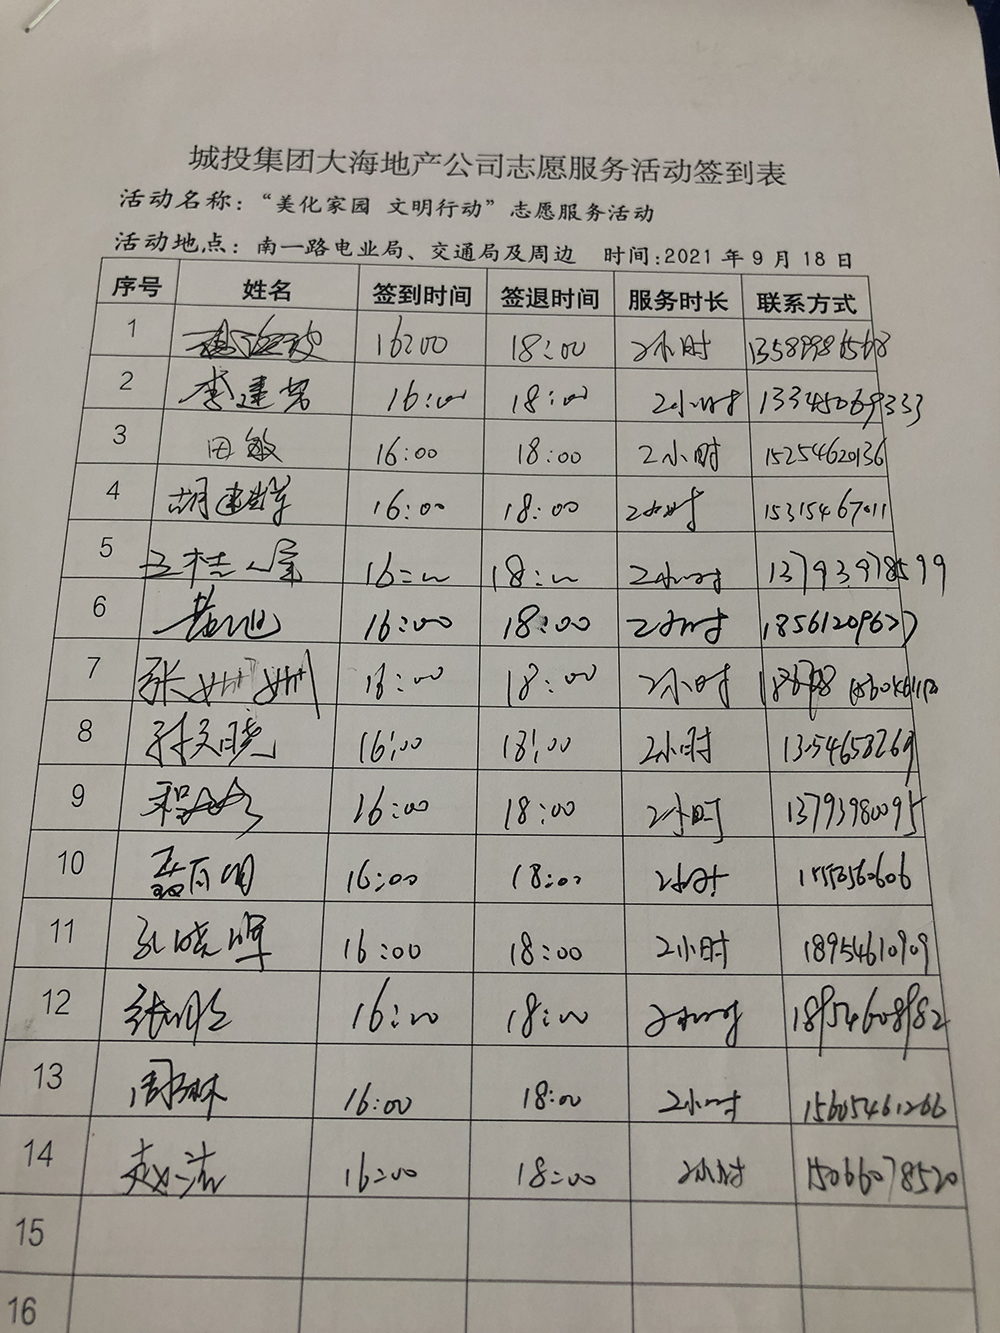 城投集团大海地产公司志愿服务活动签到表
活动名称：“美化家园 文明行动”志愿服务活动
活动地点：南一路电业局、交通局及周边 时间:2021 年 9 月 18 日
序号 姓名 签到时间 签退时间 服务时长 联系方式
1 16:00 18:00 2小时
2 李建 16:00 18:00 2小时 13345069333
3 田敏 16:00 18:00 2小时 15254620136
4 胡建 16:00 18:00 2小时 15315467011
5 16:00 18:00 2小时 13793978599
6 16:00 18:00 2小时 18561209627
7 张姗姗 16:00 18:00 2小时
8 孙文晓 16:00 18:00 2小时
9 程 16:00 18:00 2小时 13793980095
10 16:00 18:00 2小时
11 孔晓晖 16:00 18:00 2小时 18954610909
12 张 16:00 18:00 2小时 18954608982
13 周琳 16:00 18:00 2小时 15605461266
14 赵洁 16:00 18:00 2小时 15066078520
15
16